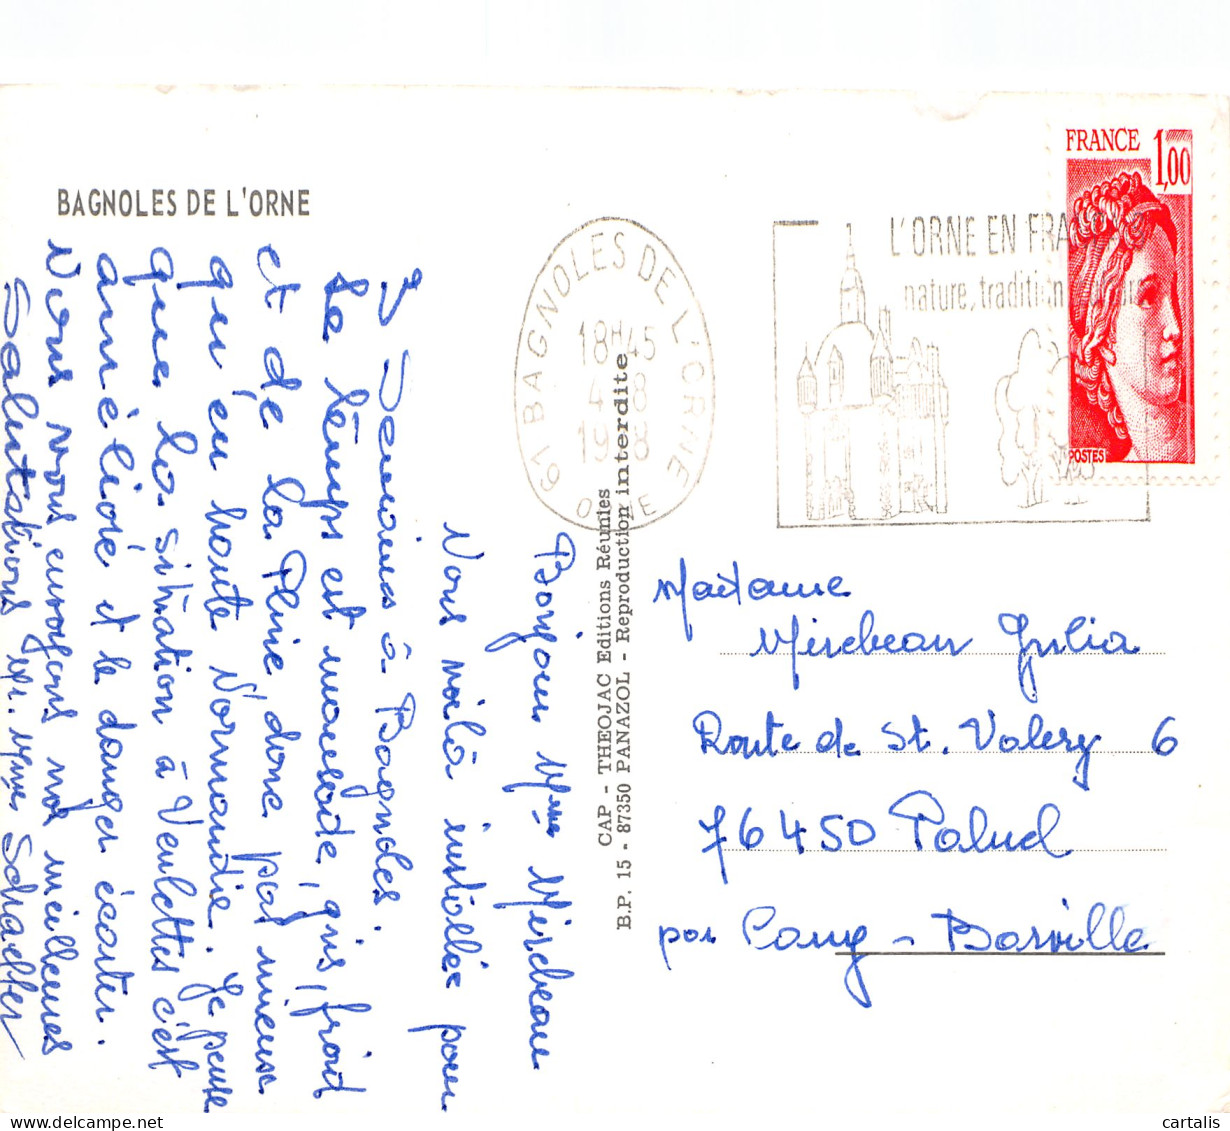 BAGNOLES DE L'ORNE
Bonjour Mme Mirebeau
Nous voilà installée pour
3 Semaines à Bagnoles.
Le temps est maussade, gris, froid
et de la Pluie, donc pas mieux
qu'en haute Normandie. Je pense
que la situation à Veulettes c'est
amélioré et le danger écarter.
Nous vous envoyons nos meilleures
Salutations Mr. Mme Schaeffer
CAP - THEOJAC Editions Réunies
B.P. 15 - 87350 PANAZOL - Reproduction interdite
61 BAGNOLES DE L'ORNE
18H45
4 8
19 8
ORNE
L'ORNE EN FRA
nature, tradition
FRANCE 1,00
POSTES
Madame
Mirebeau Julia
Route de St. Valery 6
76450 Paluel
par Cany - Barville
cartalis.com